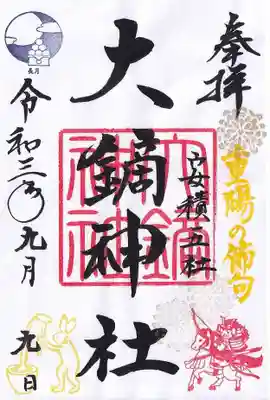 奉拝
重陽の節句
安積五社
大鏑神社
長月
令和三年九月
九日